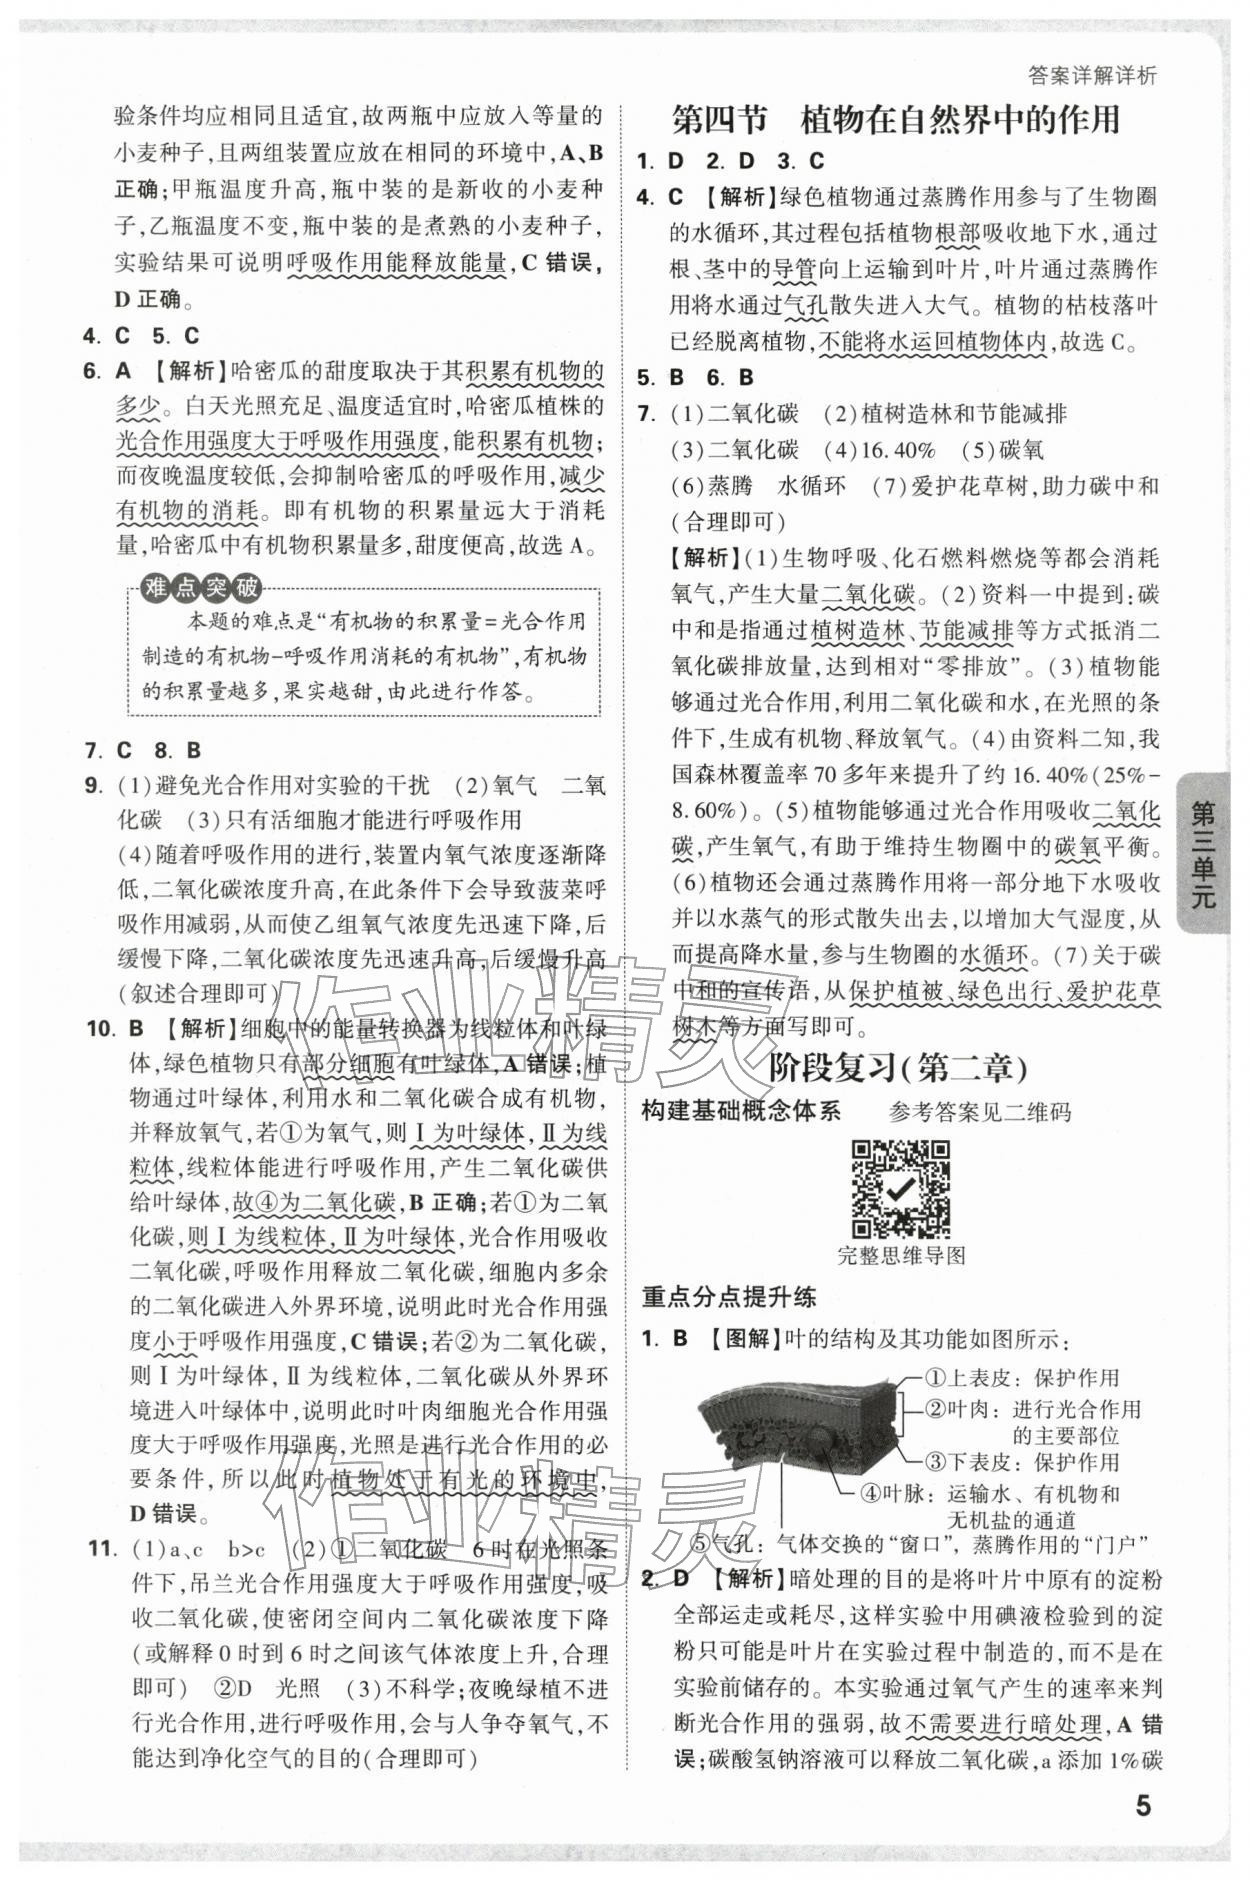 答案详解详析
验条件均应相同且适宜,故两瓶中应放入等量的
小麦种子,且两组装置应放在相同的环境中,A、B
正确;甲瓶温度升高,瓶中装的是新收的小麦种
子,乙瓶温度不变,瓶中装的是煮熟的小麦种子,
实验结果可说明呼吸作用能释放能量,C错误,
D正确。
4. C 5. C
6. A 【解析】哈密瓜的甜度取决于其积累有机物的
多少。白天光照充足、温度适宜时,哈密瓜植株的
光合作用强度大于呼吸作用强度,能积累有机物;
而夜晚温度较低,会抑制哈密瓜的呼吸作用,减少
有机物的消耗。即有机物的积累量远大于消耗
量,哈密瓜中有机物积累量多,甜度便高,故选A。
难点突破
本题的难点是“有机物的积累量=光合作用
制造的有机物-呼吸作用消耗的有机物”,有机物
的积累量越多,果实越甜,由此进行作答。
7. C 8. B
9. (1)避免光合作用对实验的干扰 (2)氧气 二氧
化碳 (3)只有活细胞才能进行呼吸作用
(4)随着呼吸作用的进行,装置内氧气浓度逐渐降
低,二氧化碳浓度升高,在此条件下会导致菠菜呼
吸作用减弱,从而使乙组氧气浓度先迅速下降,后
缓慢下降,二氧化碳浓度先迅速升高,后缓慢升高
(叙述合理即可)
10. B 【解析】细胞中的能量转换器为线粒体和叶绿
体,绿色植物只有部分细胞有叶绿体,A错误;植
物通过叶绿体,利用水和二氧化碳合成有机物,
并释放氧气,若①为氧气,则Ⅰ为叶绿体,Ⅱ为线
粒体,线粒体能进行呼吸作用,产生二氧化碳供
给叶绿体,故④为二氧化碳,B正确;若①为二氧
化碳,则Ⅰ为线粒体,Ⅱ为叶绿体,光合作用吸收
二氧化碳,呼吸作用释放二氧化碳,细胞内多余
的二氧化碳进入外界环境,说明此时光合作用强
度小于呼吸作用强度,C错误;若②为二氧化碳,
则Ⅰ为叶绿体,Ⅱ为线粒体,二氧化碳从外界环
境进入叶绿体中,说明此时叶肉细胞光合作用强
度大于呼吸作用强度,光照是进行光合作用的必
要条件,所以此时植物处于有光的环境中,
D错误。
11. (1)a、c b>c (2)①二氧化碳 6时在光照条
件下,吊兰光合作用强度大于呼吸作用强度,吸
收二氧化碳,使密闭空间内二氧化碳浓度下降
(或解释0时到6时之间该气体浓度上升,合理
即可) ②D 光照 (3)不科学;夜晚绿植不进
行光合作用,进行呼吸作用,会与人争夺氧气,不
能达到净化空气的目的(合理即可)
第四节 植物在自然界中的作用
1. D 2. D 3. C
4. C 【解析】绿色植物通过蒸腾作用参与了生物圈
的水循环,其过程包括植物根部吸收地下水,通过
根、茎中的导管向上运输到叶片,叶片通过蒸腾作
用将水通过气孔散失进入大气。植物的枯枝落叶
已经脱离植物,不能将水运回植物体内,故选C。
5. B 6. B
7. (1)二氧化碳 (2)植树造林和节能减排
(3)二氧化碳 (4)16.40% (5)碳氧
(6)蒸腾 水循环 (7)爱护花草树,助力碳中和
(合理即可)
【解析】(1)生物呼吸、化石燃料燃烧等都会消耗
氧气,产生大量二氧化碳。(2)资料一中提到:碳
中和是指通过植树造林、节能减排等方式抵消二
氧化碳排放量,达到相对“零排放”。(3)植物能
够通过光合作用,利用二氧化碳和水,在光照的条
件下,生成有机物、释放氧气。(4)由资料二知,我
国森林覆盖率70多年来提升了约16.40%(25%-
8.60%)。(5)植物能够通过光合作用吸收二氧化
碳,产生氧气,有助于维持生物圈中的碳氧平衡。
(6)植物还会通过蒸腾作用将一部分地下水吸收
并以水蒸气的形式散失出去,以增加大气湿度,从
而提高降水量,参与生物圈的水循环。(7)关于碳
中和的宣传语,从保护植被、绿色出行、爱护花草
树木等方面写即可。
阶段复习(第二章)
构建基础概念体系 参考答案见二维码
完整思维导图
重点分点提升练
1. B 【图解】叶的结构及其功能如图所示:
①上表皮:保护作用
②叶肉:进行光合作用
的主要部位
③下表皮:保护作用
④叶脉:运输水、有机物和
无机盐的通道
⑤气孔:气体交换的“窗口”,蒸腾作用的“门户”
2. D 【解析】暗处理的目的是将叶片中原有的淀粉
全部运走或耗尽,这样实验中用碘液检验到的淀
粉只可能是叶片在实验过程中制造的,而不是在
实验前储存的。本实验通过氧气产生的速率来判
断光合作用的强弱,故不需要进行暗处理,A错
误;碳酸氢钠溶液可以释放二氧化碳,a添加1%碳
第三单元
5
作业精灵
作业精灵